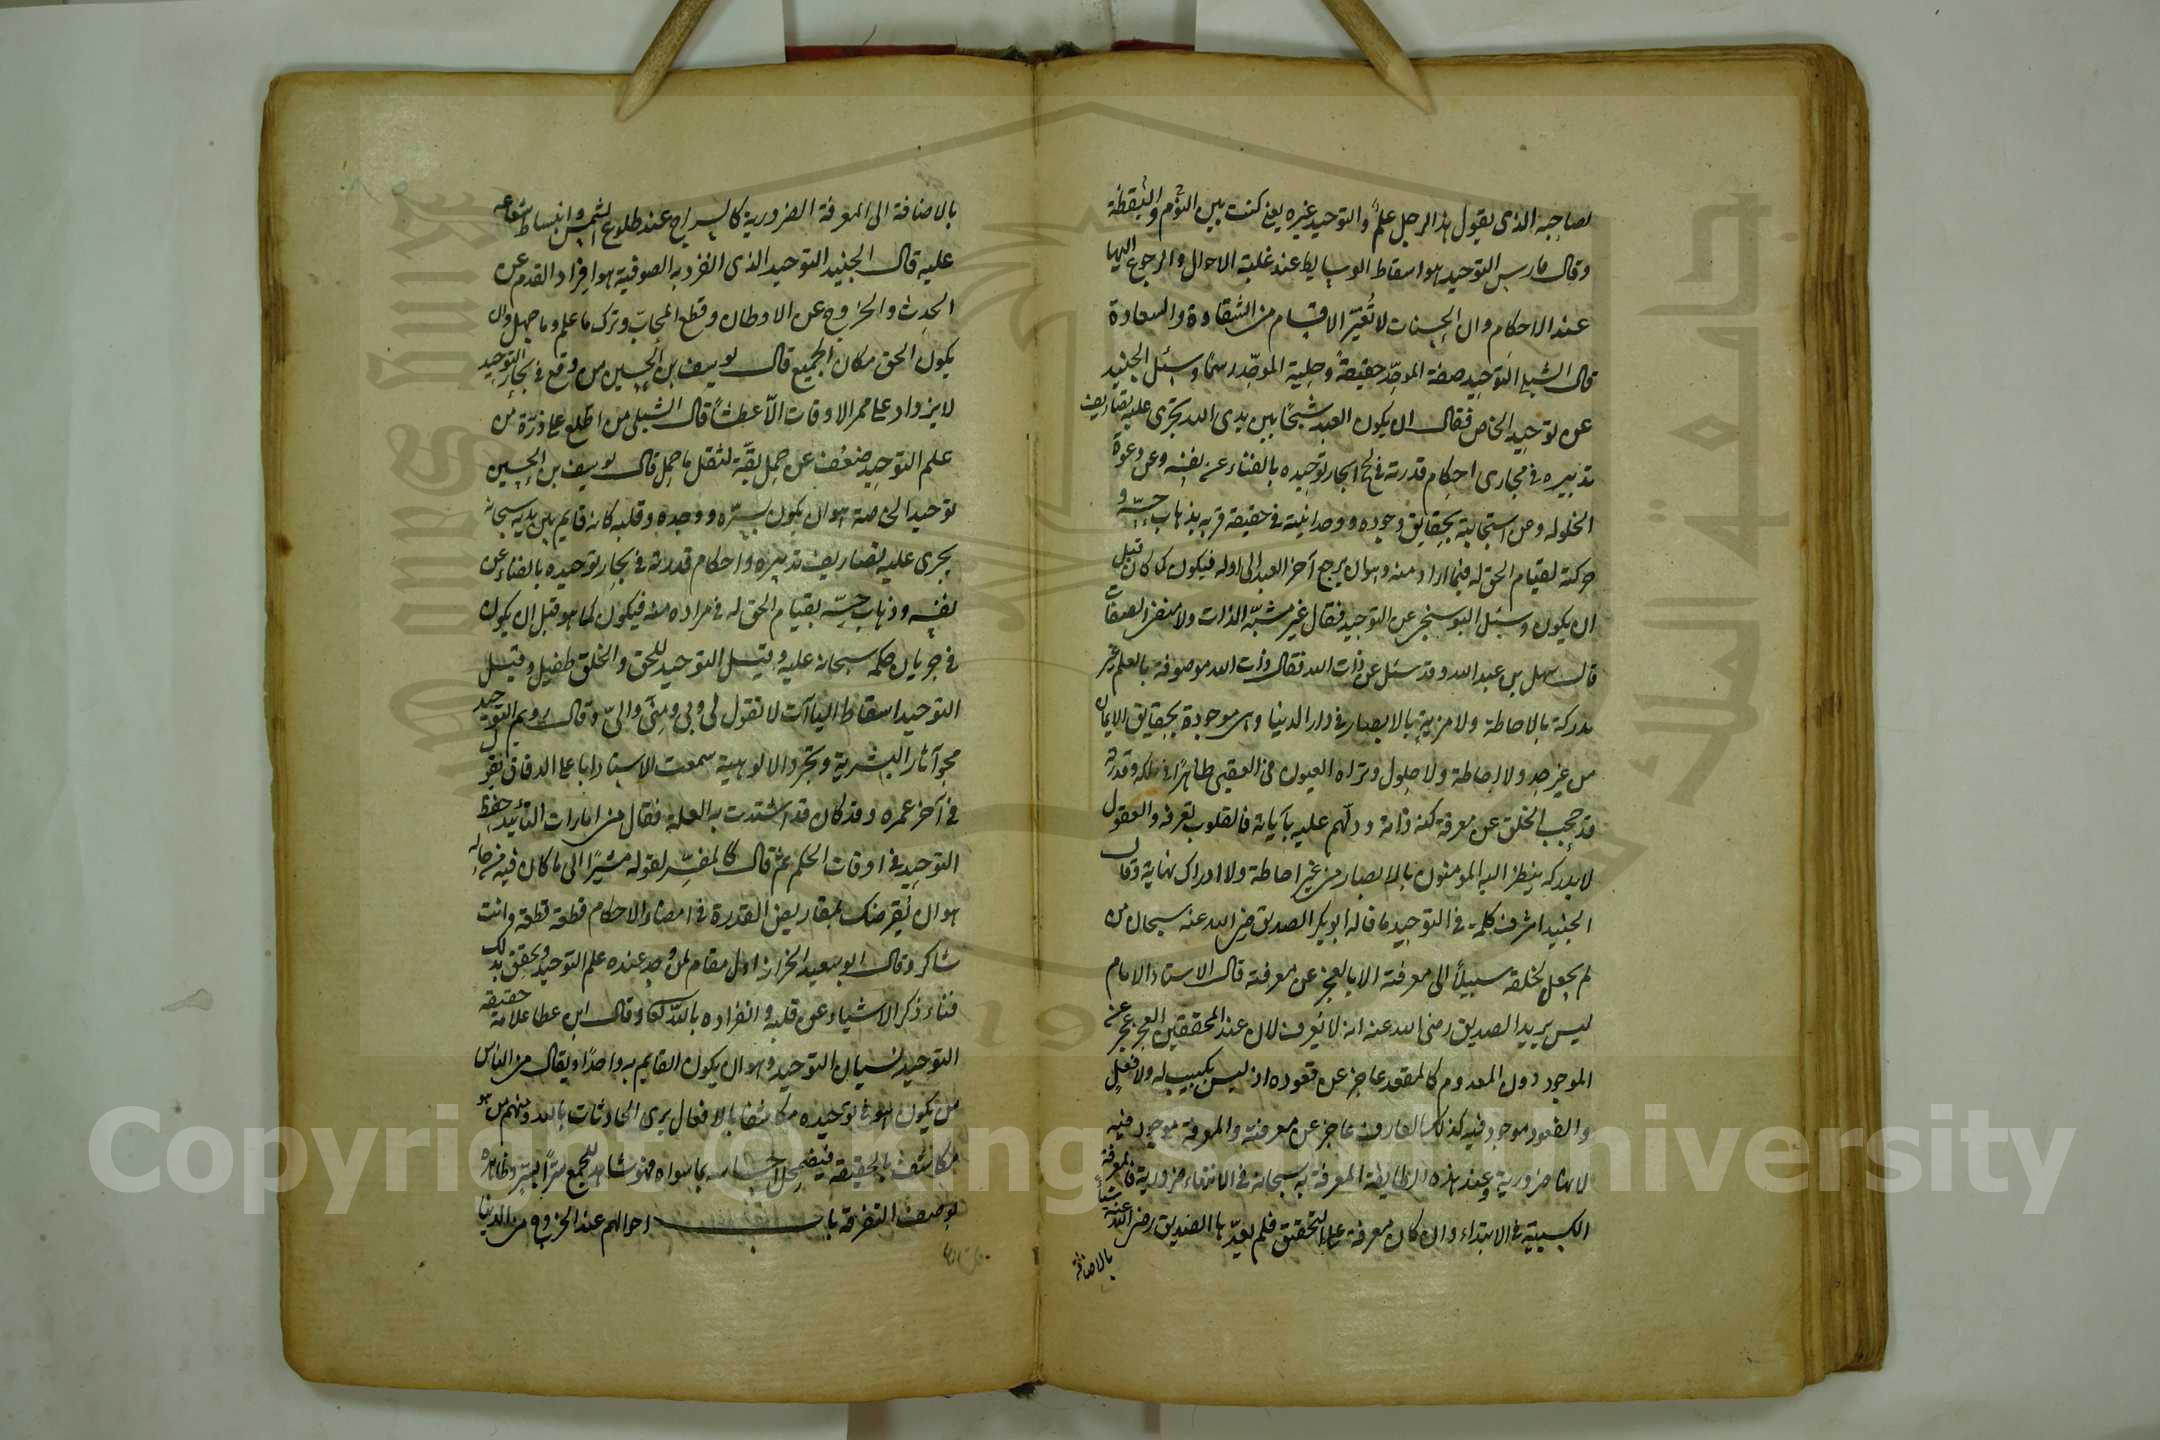 لصاحبه الذى يقول هذا الرجل علماً والتوحيد غيره يعنى كنت بين النوم واليقظة
وقال فارس التوحيد هو اسقاط الوسايط عند غلبة الاحوال والرجوع اليها
عند الاحكام وان الحسنات لا تُغيّر الاقسام من الشقاوة والسعادة
قال الشبلى التوحيد صفة الموحِّد حقيقةً وحلية الموحِّد رسمًا وسئل الجنيد
عن توحيد الخاص فقال ان يكون العبد شبحًا بين يدى الله تجرى عليه تصاريف
تدبيره فى مجارى احكام قدرته فى لجج ابحار توحيده بالفناء عن نفسه وعن دعوة
الخلق له وعن استجابته بحقايق وجوده ووحدانيته فى حقيقة قربه بذهاب حسّه و
حركته لقيام الحق له فيما اراد منه وهو ان يرجع آخر العبد الى اوله فيكون كما كان قبل
ان يكون وسئل البوسنجى عن التوحيد فقال غير مشبّه الذات ولا منفى الصفات
قال سهل بن عبد الله وقد سئل عن ذات الله فقال ذات الله موصوفة بالعلم غير
مدركة بالاحاطة ولا مرئية بالابصار فى دار الدنيا وهى موجودة بحقايق الايمان
من غير حد ولا احاطة ولا حلول وتراه العيون فى العقبى ظاهرًا فى ملكه وقدرته
قد حجب الخلق عن معرفة كنه ذاته ودلّهم عليه بآياته فالقلوب تعرفه والعقول
لا تدركه ينظر اليه المؤمنون بالابصار من غير احاطة ولا ادراك نهاية وقال
الجنيد اشرف كلمة فى التوحيد ما قاله ابو بكر الصديق رضى الله عنه سبحان من
لم يجعل لخلقه سبيلاً الى معرفته الا بالعجز عن معرفته قال الاستاد الامام
ليس يريد الصديق رضى الله عنه انه لا يُعرف لان عند المحققين العجز عجز عن
الموجود دون المعدوم كالمقعد عاجز عن قعوده اذ ليس بكسب له ولا فعلٍ
والقعود موجود فيه كذلك العارف عاجز عن معرفته والمعرفة موجودة فيه
لانها ضرورية وعند هذه الطايفة المعرفة به سبحانه فى الانتهاء ضرورية فالمعرفة
الكسبية فى الابتداء وان كان معرفة على التحقيق فلم يعدّها الصديق رضى الله عنه شيئاً
بالاضافة
بالاضافة الى المعرفة الضرورية كالسراج عند طلوع الشمس وانبساط شعاعه
عليه قال الجنيد التوحيد الذى انفرد به الصوفية هو افراد القدم عن
الحدث والخروج عن الاوطان وقطع المحابّ وترك ما علم وما جهل وان
يكون الحق مكان الجميع قال يوسف بن الحسين من وقع فى بحار التوحيد
لا يزداد على ممر الاوقات الاّ عطشاً قال الشبلى من اطلع على ذرّة من
علم التوحيد ضعُف عن حمل بقّة لثقل ما حمل قال يوسف بن الحسين
توحيد الخاصة هو ان يكون بسرّه ووجده وقلبه كانه قايم بين يديه سبحانه
يجرى عليه تصاريف تدبيره واحكام قدرته فى بحار توحيده بالفناء عن
نفسه وذهاب حسّه بقيام الحق له فى مراده منه فيكون كما هو قبل ان يكون
فى جريان حكمه سبحانه عليه وقيل التوحيد للحق والخلق طفيل وقيل
التوحيد اسقاط الياآت لا تقول لى وبى ومنّى والىّ وقال رويم التوحيد
محو آثار البشرية وتجرد الالوهية سمعت الاستاد ابا على الدقاق يقول
فى آخر عمره وقد كان قد اشتدت به العلة فقال من امارات التأئيد حفظ
التوحيد فى اوقات الحكم ثم قال كالمفسِّر لقوله مشيرًا الى ما كان فيه من حاله
هو ان يُقرضك بمقاريض القدرة فى امضاء الاحكام قطعة قطعة وانت
شاكر وقال ابو سعيد الخراز اول مقام لمن وجد عنده علم التوحيد وتحقق بذلك
فناء ذكر الاشياء عن قلبه وانفراده بالله تعالى وقال ابن عطا علامة حقيقة
التوحيد نسيان التوحيد وهو ان يكون القايم به واحدًا ويقال من الناس
من يكون هو فى توحيده مكاشفا بالافعال يرى الحادثات بالله ومنهم من هو
مكاشف بالحقيقة فيضمحل احساسه بما سواه فهو شاهد للجمع سرًّا بسرّ وظاهره
بوصف التفرقة باب احوالهم عند الخروج من الدنيا